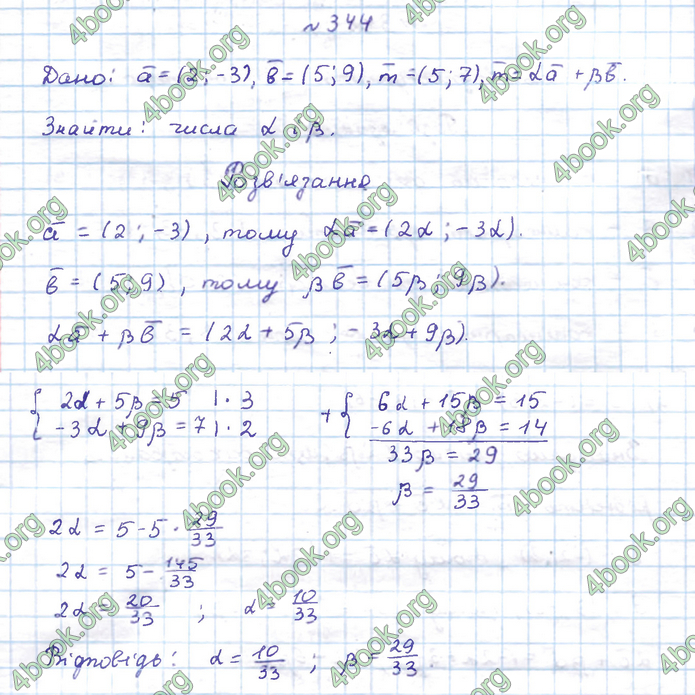 № 344
Дано: a̅ = (2; -3), b̅ = (5; 9), m̅ = (5; 7), m̅ = αa̅ + βb̅.
Знайти: числа α і β.
Розв'язання
a̅ = (2; -3), тому αa̅ = (2α; -3α).
b̅ = (5; 9), тому βb̅ = (5β; 9β).
αa̅ + βb̅ = (2α + 5β; -3α + 9β).
{ 2α + 5β = 5 | · 3
-3α + 9β = 7 | · 2
+ { 6α + 15β = 15
-6α + 18β = 14
33β = 29
β = 29/33
2α = 5 - 5 · 29/33
2α = 5 - 145/33
2α = 20/33 ; α = 10/33
Відповідь: α = 10/33 ; β = 29/33.
4book.org